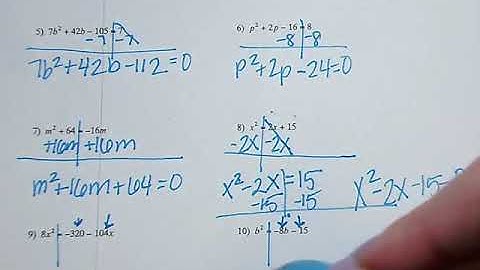 5) 7b² + 42b - 105 = 7
-7 -7
7b² + 42b - 112 = 0
6) p² + 2p - 16 = 8
-8 -8
p² + 2p - 24 = 0
7) m² + 64 = -16m
+16m +16m
m² + 16m + 64 = 0
8) x² = 2x + 15
-2x -2x
x² - 2x = 15
-15 -15
x² - 2x - 15
9) 8x² = -320 - 104x
10) b² = -8b - 15